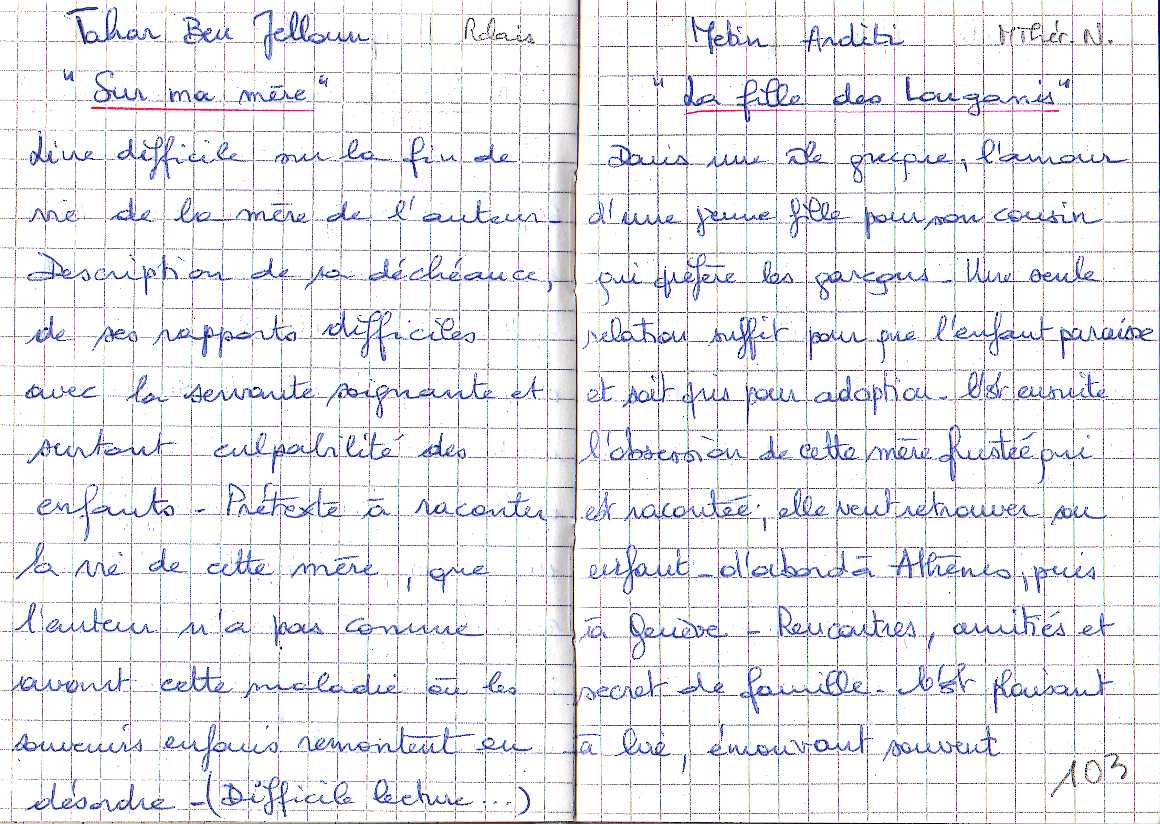 Tahar Ben Jelloun Relais
"Sur ma mère"
Livre difficile sur la fin de
vie de la mère de l'auteur -
Description de sa déchéance,
de ses rapports difficiles
avec la servante soignante et
surtout culpabilité des
enfants - Prétexte à raconter
la vie de cette mère, que
l'auteur n'a pas connue
avant cette maladie où les
souvenirs enfouis remontent en
désordre - (Difficile lecture...)
Metin Arditi MThér. N.
"La fille des Louganis"
Dans une île grecque, l'amour
d'une jeune fille pour son cousin
qui préfère les garçons - Une seule
relation suffit pour que l'enfant paraisse
et soit pris pour adoption - C'est ensuite
l'obsession de cette mère frustrée qui
est racontée ; elle veut retrouver son
enfant - d'abord à Athènes, puis
à Genève - Rencontres, amitiés et
secret de famille - C'est plaisant
à lire, émouvant souvent
103